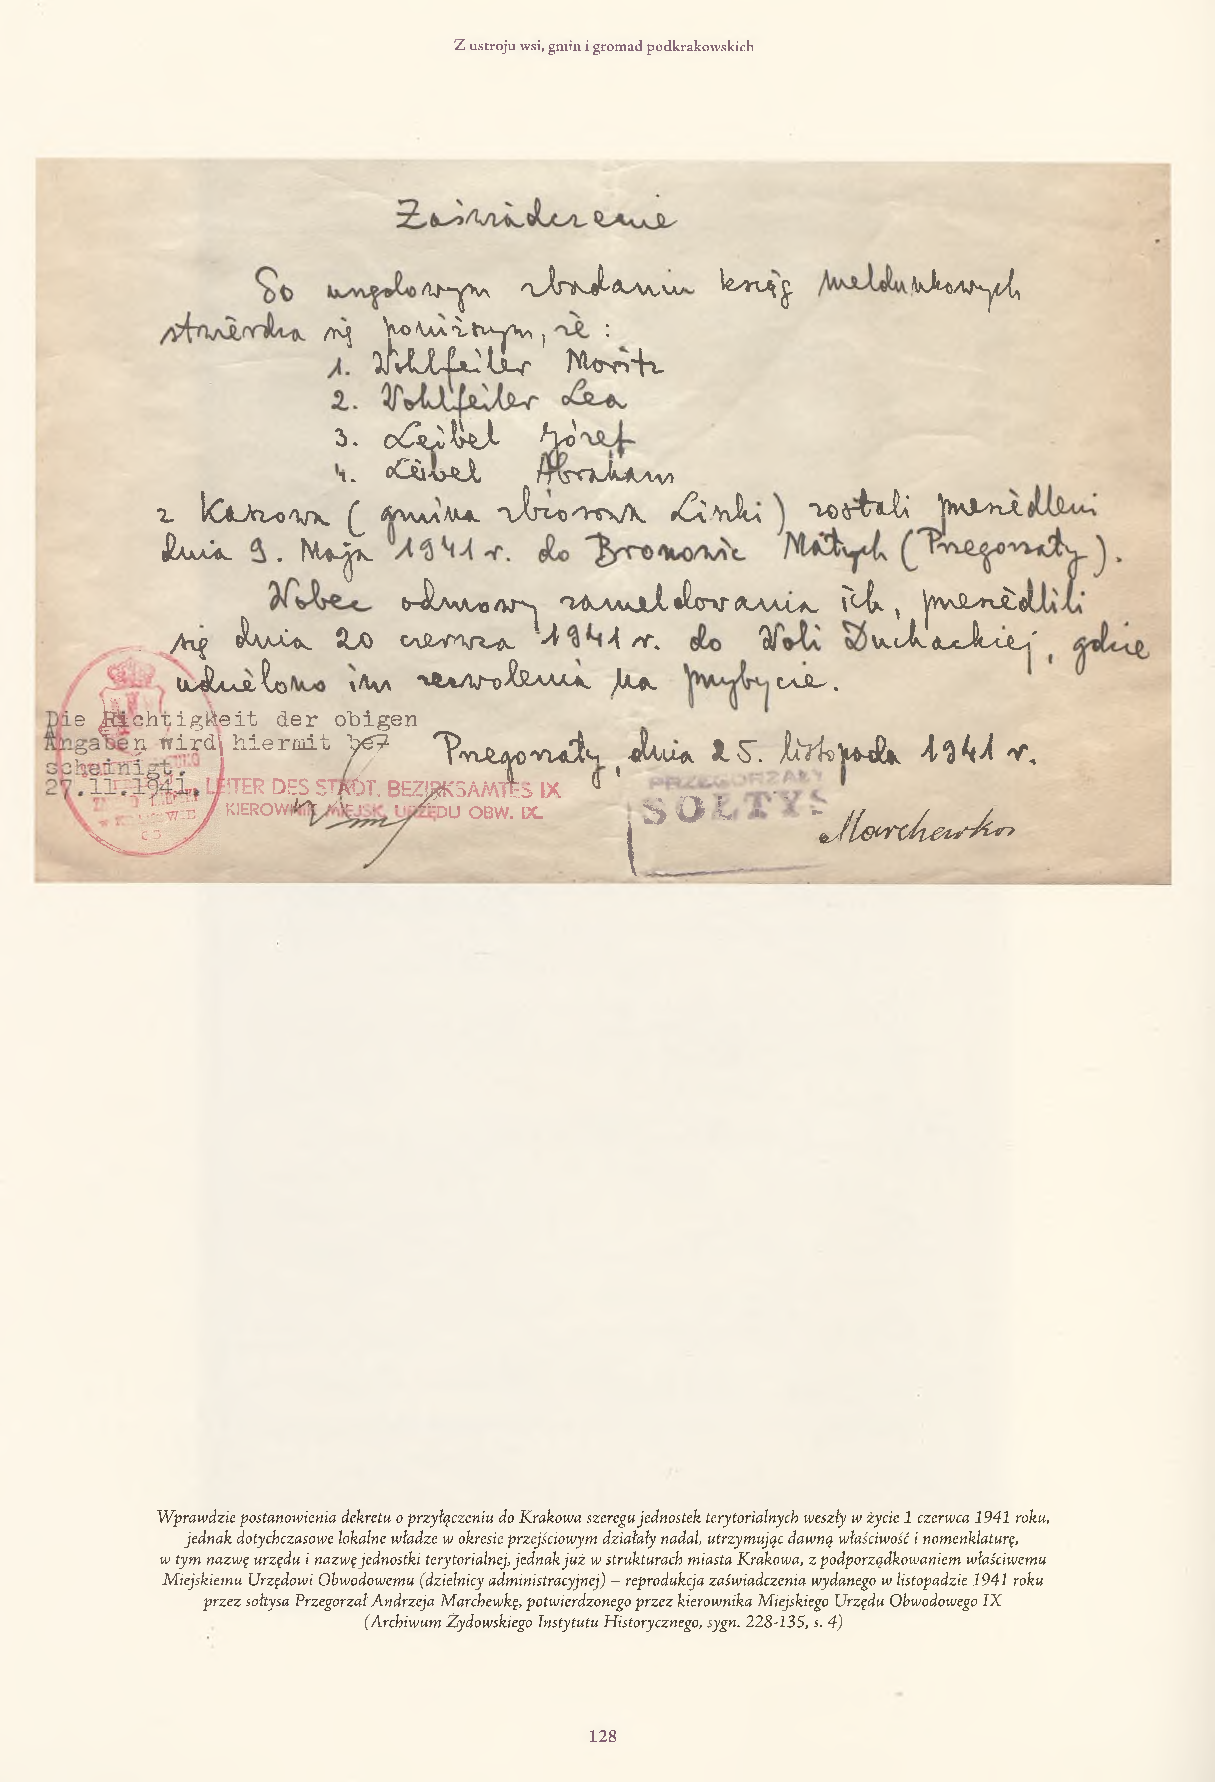 Z ustroju wsi, gmin i gromad podkrakowskich
Zaświadczenie
Po urzędowym zbadaniu ksiąg meldunkowych
stwierdza się poniższym, że :
1. Wohlfeiler Moritz
2. Wohlfeiler Lea
3. Leibel Józef
4. Leibel Abraham
z Kaszowa ( gmina zbiorowa Liszki ) zostali przesiedleni
dnia 9. Maja 1941 r. do Bronowic Małych ( Przegorzały ).
Wobec odmowy zameldowania ich, przesiedlili
się dnia 20 czerwca 1941 r. do Woli Duchackiej, gdzie
udzielono im zezwolenia na przybycie.
Die Richtigkeit der obigen
Angaben wird hiermit be-
scheinigt.
27.11.1941.
Przegorzały, dnia 25. listopada 1941 r.
LEITER DES STÄDT. BEZIRKSAMTES IX
KIEROWNIK MIEJSK. URZĘDU OBW. IX.
PRZEGORZAŁY
SOŁTYS
Marchewka
Wprawdzie postanowienia dekretu o przyłączeniu do Krakowa szeregu jednostek terytorialnych weszły w życie 1 czerwca 1941 roku,
jednak dotychczasowe lokalne władze w okresie przejściowym działały nadal, utrzymując dawną właściwość i nomenklaturę,
w tym nazwę urzędu i nazwę jednostki terytorialnej, jednak już w strukturach miasta Krakowa, z podporządkowaniem właściwemu
Miejskiemu Urzędowi Obwodowemu (dzielnicy administracyjnej) – reprodukcja zaświadczenia wydanego w listopadzie 1941 roku
przez sołtysa Przegorzał Andrzeja Marchewkę, potwierdzonego przez kierownika Miejskiego Urzędu Obwodowego IX
(Archiwum Żydowskiego Instytutu Historycznego, sygn. 228-135, s. 4)
128